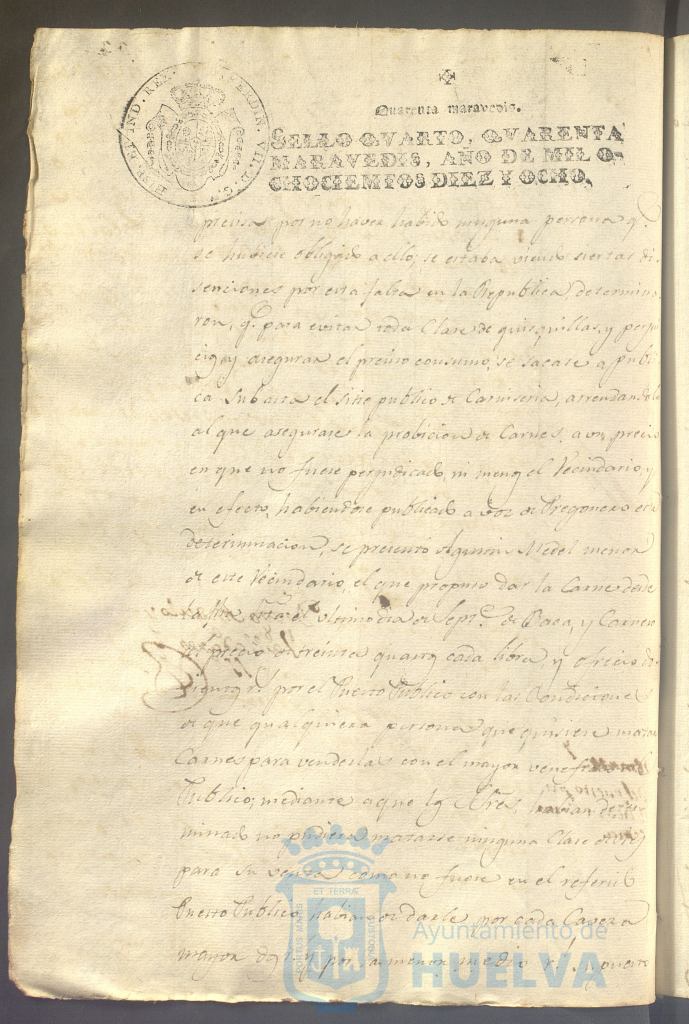 HISP. ET IND. REX. FERDIN. VII. D. G.
Quarenta maravedis.
SELLO QVARTO, QVARENTA
MARAVEDIS, AÑO DE MIL O-
CHOCIENTOS DIEZ Y OCHO.
precisa por no haver habido ninguna persona q.e
se hubiese obligado a ello; se estaba viendo ciertas di
senciones por esta falta en la Republica, determina
ron, q.e para evitar toda Clase de quisquillas, y perju
y asegurar el preciso consumo, se sacase a publi
ca Subasta el sitio publico de Carniseria, arrendandolo
al que asegurase la probicion de Carnes, a un precio
en que no fuese perjudicado, ni menos el Vecindario, y
en efecto, habiendose publicado a voz de Pregonero esta
determinacion, se presentó Agustin Medel menor
de este Vecindario, el que propuso dar la Carne desde
el ultimo dia de Sept.e de Baca, y Carnero
al precio de treinta quartos cada libra, y ofrecio
r.s por el Puesto Publico con las Condiciones
de que qualquiera persona que quisiere matar
Carnes para venderlas con el mayor venefi
Publico; mediante a que los Sres, habian deter
minado no pudiera matarse ninguna Clase de
para su venta como no fuere en el referido
Puesto Publico, habian de darle por cada Caveza
mayor dos r.s y por la menor medio r.l
ET TERRÆ
Ayuntamiento de
HUELVA